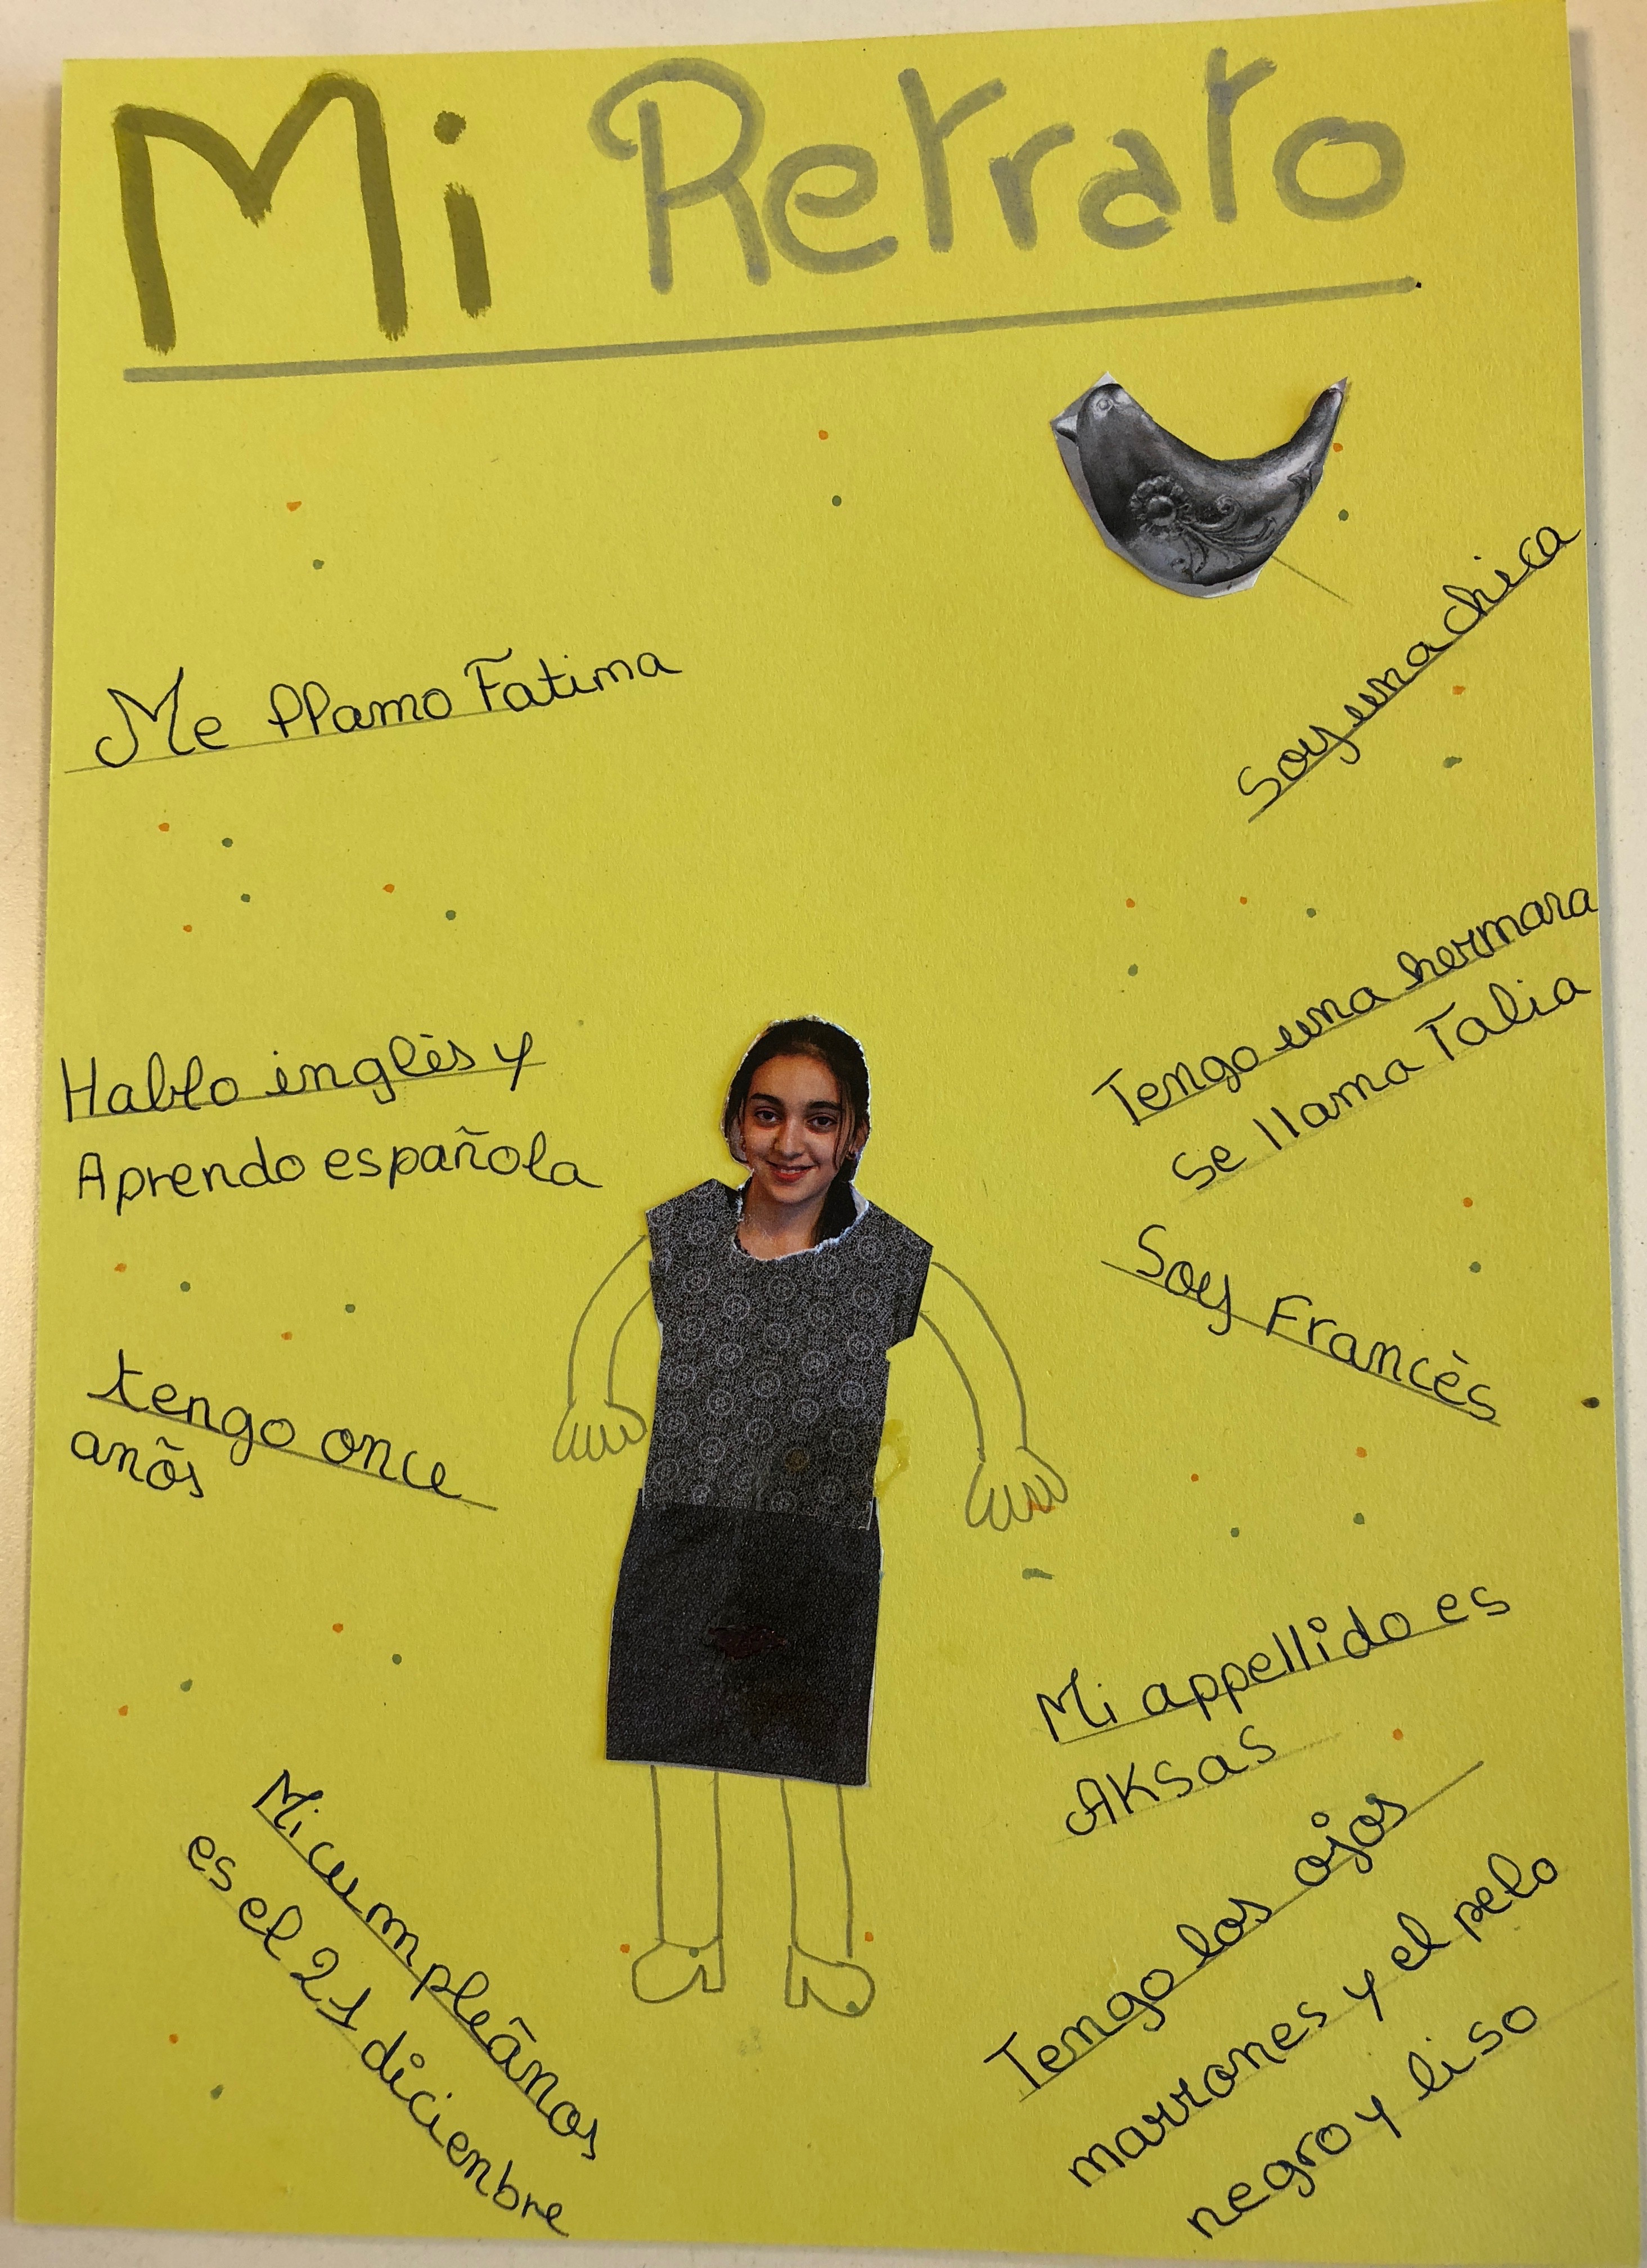 Mi Retrato
Me llamo Fatima
Soy una chica
Tengo una hermara
se llama Talia
Hablo inglès y
Aprendo española
Soy Francès
tengo once
anõs
Mi appellido es
AKSas
Tengo los ojos
marrones y el pelo
negro y liso
Mi cumpleãnos
es el 21 diciembre